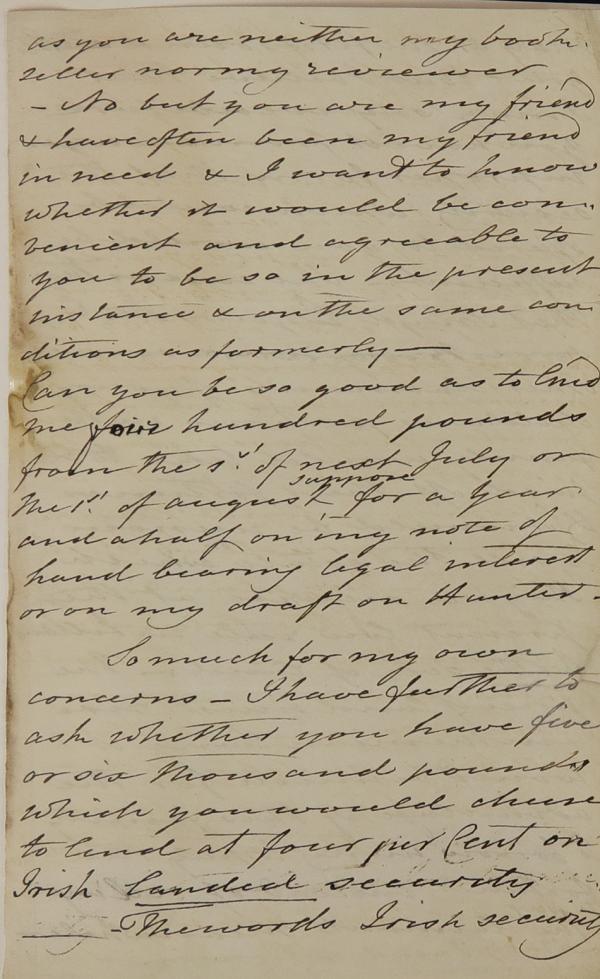 as you are neither my book-
seller nor my reviewer
- No but you are my friend
& have often been my friend
in need & I want to know
whether it would be con-
venient and agreeable to
you to be so in the present
instance & on the same con
ditions as formerly —
Can you be so good as to lend
me four hundred pounds
from the 1st of next July or
suppose
the 1st of august for a year
and a half on my note of
hand bearing legal interest
or on my draft on Hunter -
So much for my own
concerns - I have further to
ask whether you have five
or six thousand pounds
which you would chuse
to lend at four per Cent on
Irish landed security
- The words Irish security